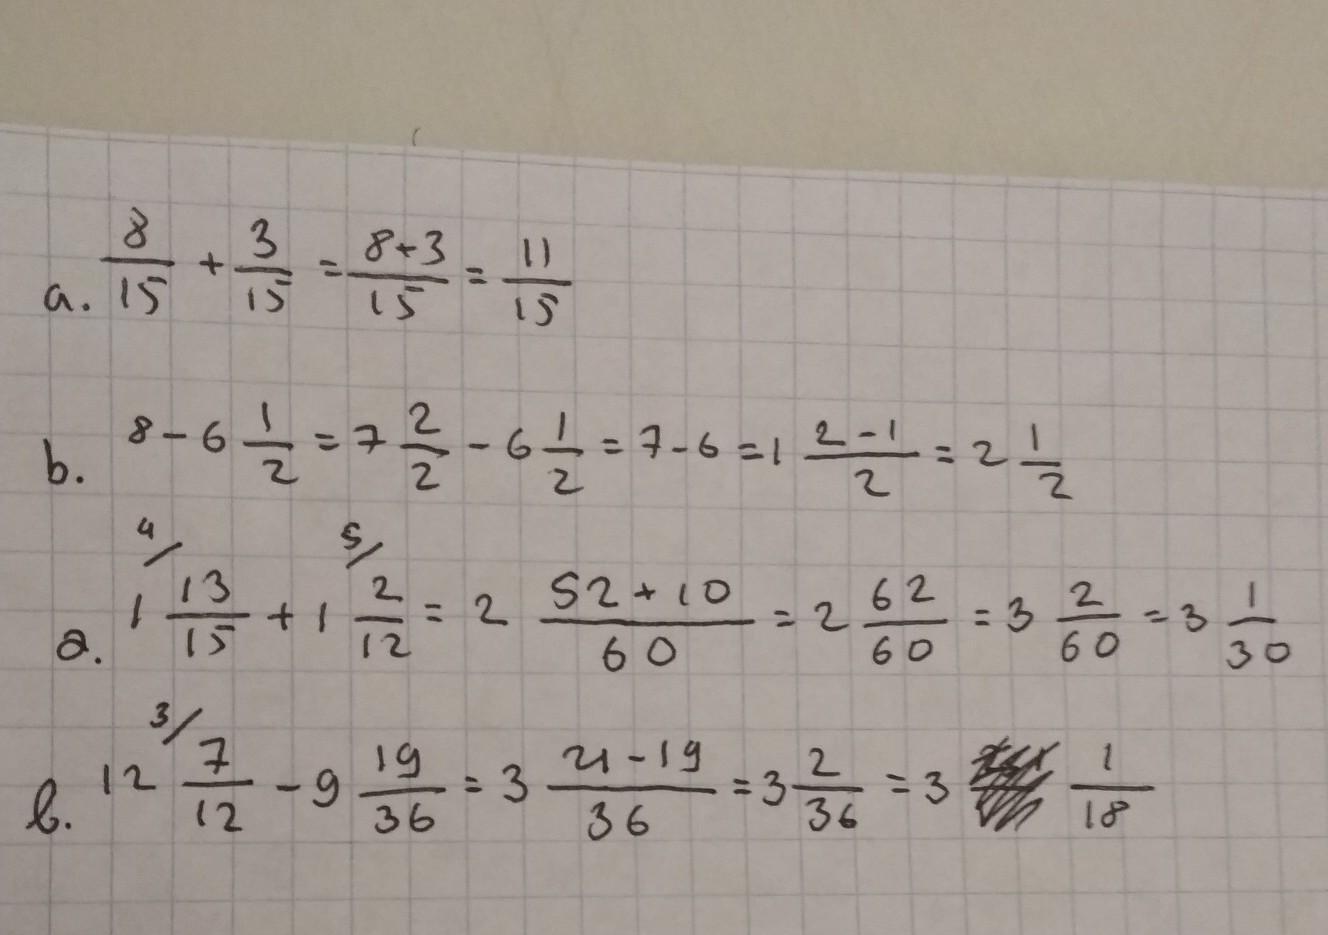 a. 8/15 + 3/15 = 8+3/15 = 11/15
b. 8 - 6 1/2 = 7 2/2 - 6 1/2 = 7 - 6 = 1 2-1/2 = 2 1/2
a. 4/ 1 13/15 + 5/ 1 2/12 = 2 52+10/60 = 2 62/60 = 3 2/60 = 3 1/30
b. 3/ 12 7/12 - 9 19/36 = 3 21-19/36 = 3 2/36 = 3 1/18